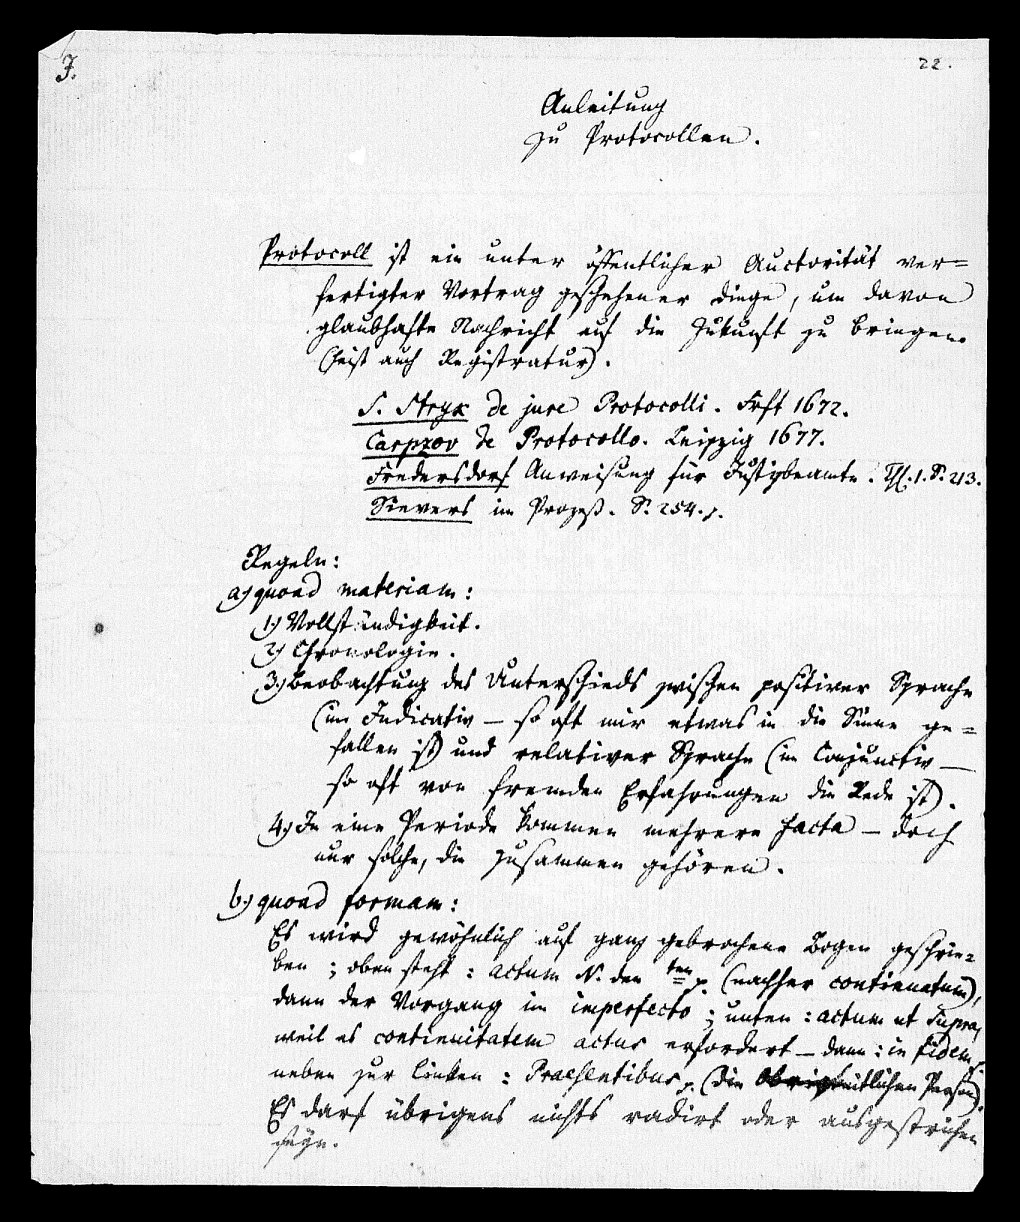 J.
22.
Anleitung
zu Protocollen.
Protocoll ist ein unter öffentlicher Auctorität ver=
fertigter Vortrag geschehener Dinge, um davon
glaubhafte Nachricht auf die Zukunft zu bringen.
(heist auch Registratur).
S. Stryk de jure Protocolli. Frft 1672.
Carpzov de Protocollo. Leipzig 1677.
Fredersdorf Anweisung für Justizbeamte. Th. 1. S. 213.
Sievers im Prozeß. S. 254.
Regeln:
a.) quoad materiam:
1.) Vollständigkeit.
2.) Chronologie.
3.) Beobachtung des Unterschieds zwischen positiver Sprache
(im Indicativ — so oft mir etwas in die Sinne ge=
fallen ist) und relativer Sprache (im Conjunctiv —
so oft von fremden Erfahrungen die Rede ist).
4.) In eine Periode kommen mehrere facta — doch
nur solche, die zusammen gehören.
b.) quoad formam:
Es wird gewöhnlich auf ganz gebrochene Bogen geschrie=
ben; oben steht: actum N. den ten (nachher continuatum),
dann der Vorgang im imperfecto; unten: actum ut supra,
weil es continuitatem actus erfordert — dann: in fidem.
neben zur linken: Praesentibus, (die Person).
Es darf übrigens nichts radirt oder ausgestrichen
seyn.